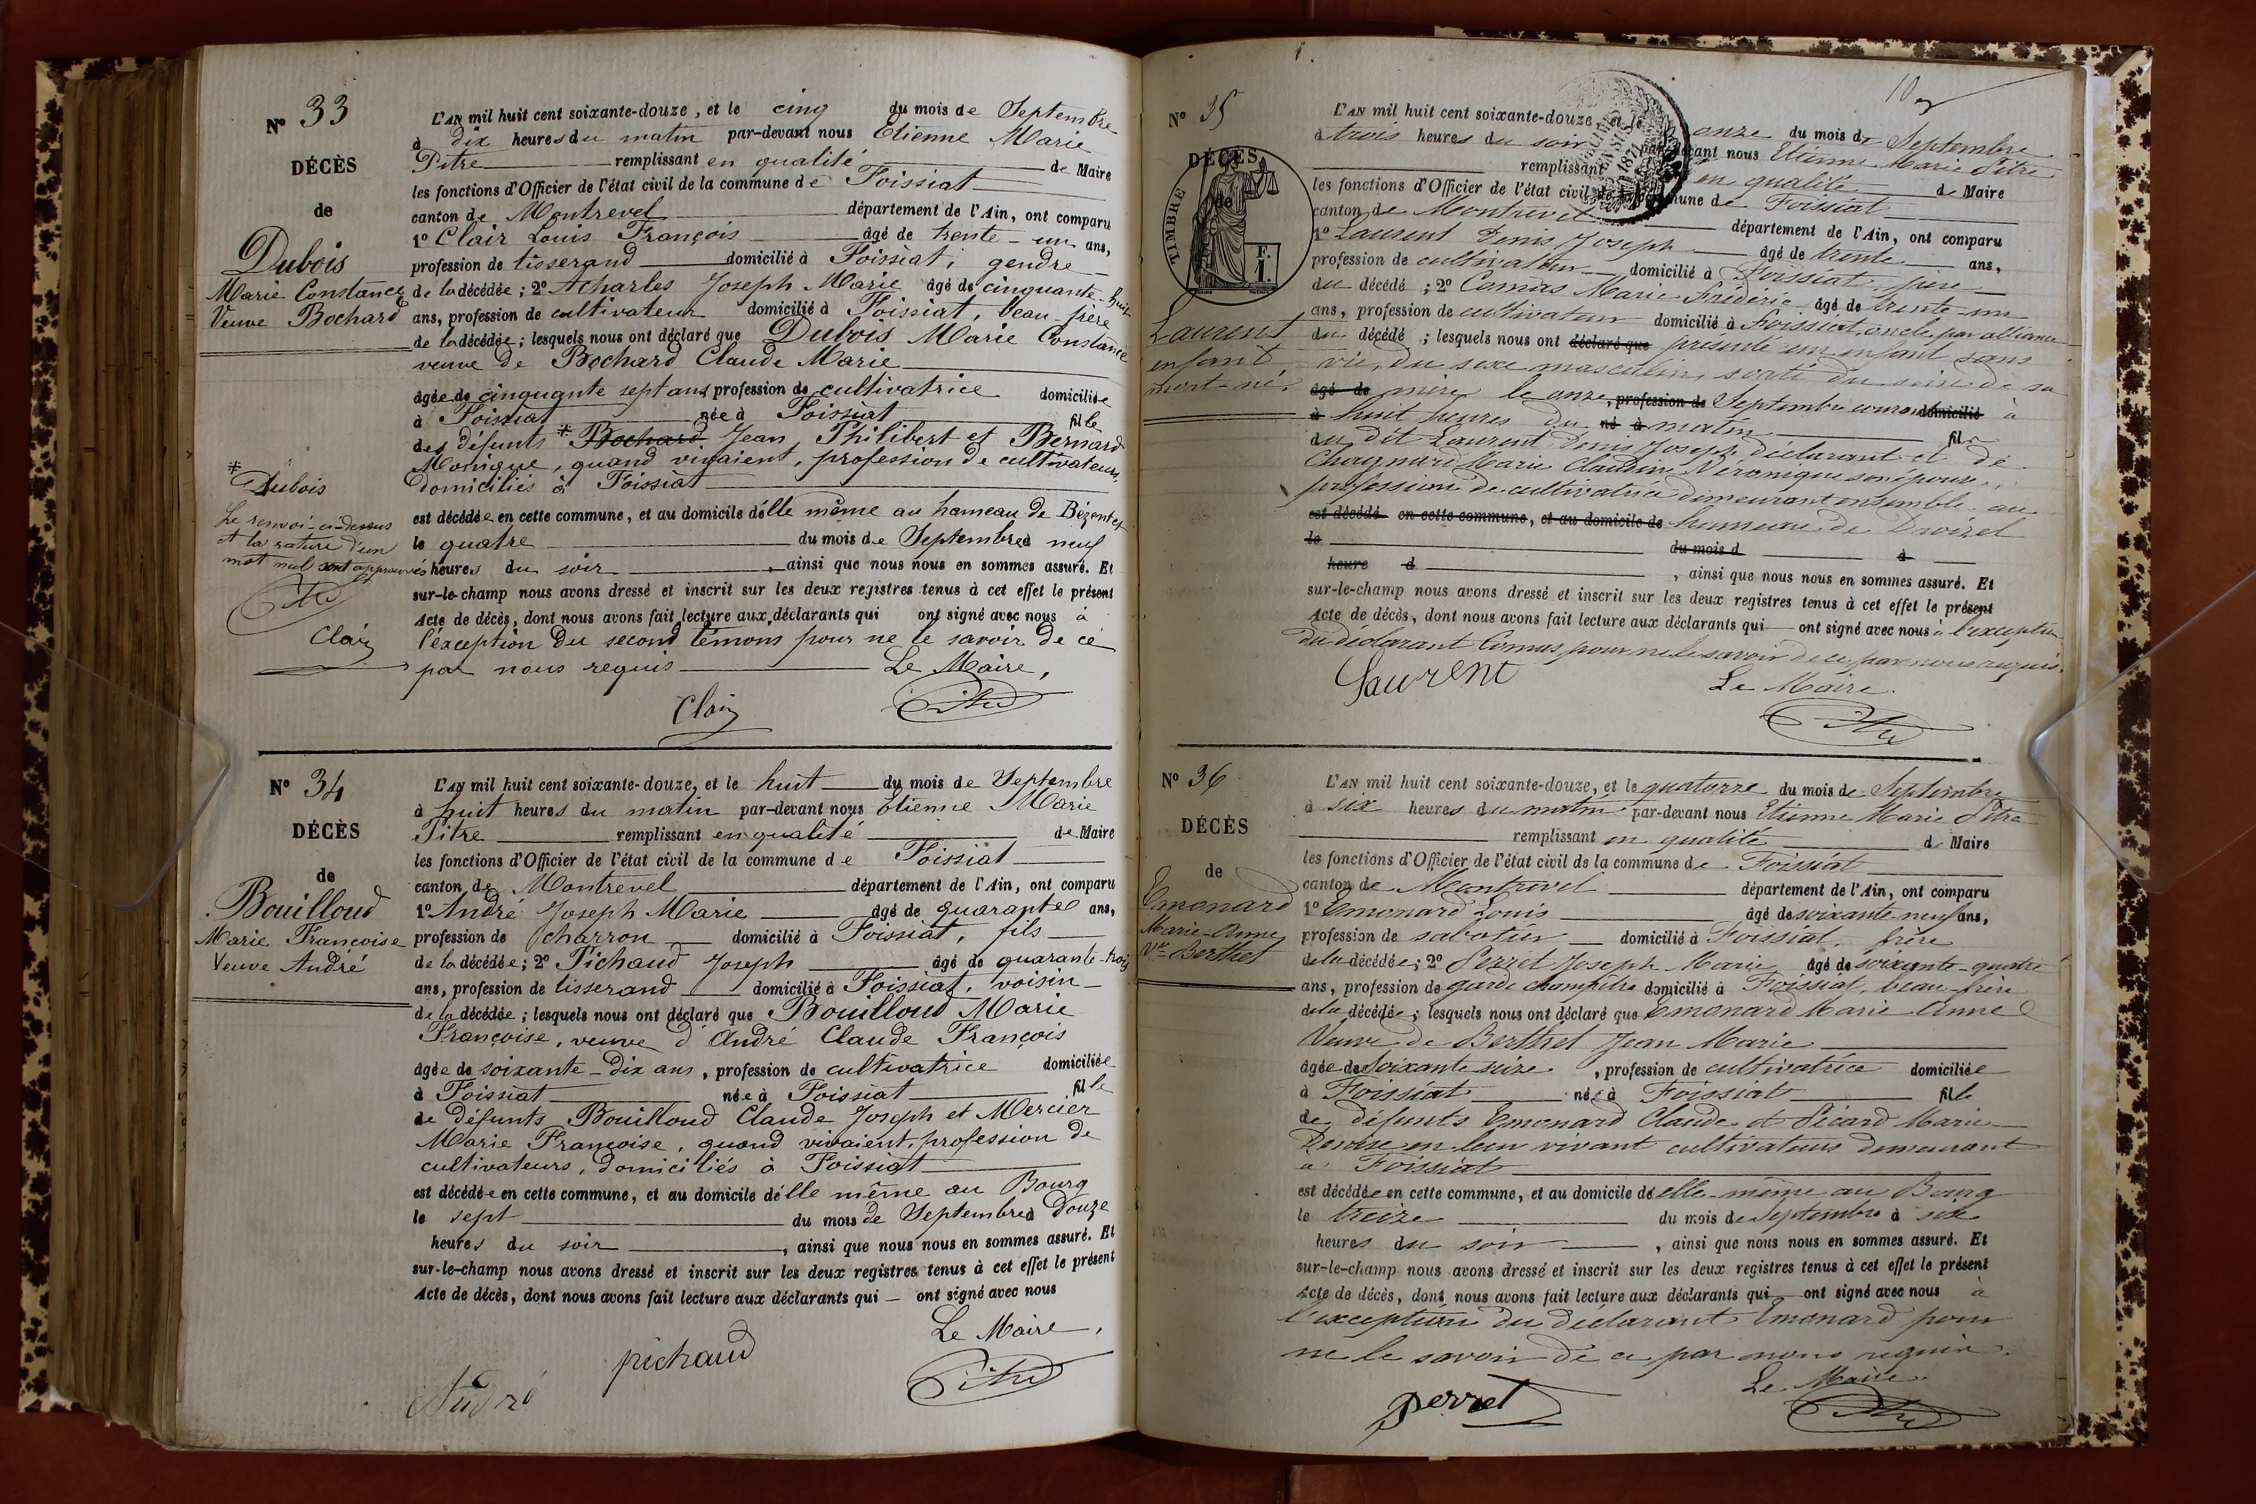 N° 33
DÉCÈS
de
Dubois
Marie Constance
Veuve Bochard
L'AN mil huit cent soixante-douze, et le cinq du mois de Septembre
à dix heures du matin par-devant nous Etienne Marie
Pitre remplissant en qualité de Maire
les fonctions d'Officier de l'état civil de la commune de Foissiat
canton de Montrevel département de l'Ain, ont comparu
1° Clair Louis François âgé de trente-un ans,
profession de tisserand domicilié à Foissiat, gendre
de la décédée; 2° Acharles Joseph Marie âgé de cinquante-huit
ans, profession de cultivateur domicilié à Foissiat, beau-frère
de la décédée; lesquels nous ont déclaré que Dubois Marie Constance
veuve de Bochard Claude Marie
âgée de cinquante sept ans, profession de cultivatrice domiciliée
à Foissiat née à Foissiat fille
des défunts * Bochard Jean Philibert et Bernard
Monique, quand vivaient, profession de cultivateurs,
domiciliés à Foissiat
* Dubois
Le renvoi ci-dessus
et la rature d'un
mot nul sont approuvés
Pitre
Clair
est décédée en cette commune, et au domicile d'elle même au hameau de Bézentet
le quatre du mois de Septembre à neuf
heures du soir, ainsi que nous nous en sommes assuré. Et
sur-le-champ nous avons dressé et inscrit sur les deux registres tenus à cet effet le présent
Acte de décès, dont nous avons fait lecture aux déclarants qui ont signé avec nous à
l'exception du second témoins pour ne le savoir de ce
par nous requis Le Maire,
Clair Pitre
N° 34
DÉCÈS
de
Bouilloud
Marie Françoise
Veuve André
L'AN mil huit cent soixante-douze, et le huit du mois de Septembre
à huit heures du matin par-devant nous Etienne Marie
Pitre remplissant en qualité de Maire
les fonctions d'Officier de l'état civil de la commune de Foissiat
canton de Montrevel département de l'Ain, ont comparu
1° André Joseph Marie âgé de quarante ans,
profession de charron domicilié à Foissiat, fils
de la décédée; 2° Pichaud Joseph âgé de quarante-trois
ans, profession de tisserand domicilié à Foissiat, voisin
de la décédée; lesquels nous ont déclaré que Bouilloud Marie
Françoise, veuve d'André Claude François
âgée de soixante-dix ans, profession de cultivatrice domiciliée
à Foissiat née à Foissiat fille
de défunts Bouilloud Claude Joseph et Mercier
Marie Françoise, quand vivaient, profession de
cultivateurs, domiciliés à Foissiat
est décédée en cette commune, et au domicile d'elle même au Bourg
le sept du mois de Septembre à Douze
heures du soir, ainsi que nous nous en sommes assuré. Et
sur-le-champ nous avons dressé et inscrit sur les deux registres tenus à cet effet le présent
Acte de décès, dont nous avons fait lecture aux déclarants qui ont signé avec nous
Le Maire,
André pichaud Pitre
N° 35
DÉCÈS
de
TIMBRE
F.
1.
1871
Laurent
enfant
mort-né
L'AN mil huit cent soixante-douze, et le onze du mois de Septembre
à trois heures du soir par-devant nous Etienne Marie Pitre
remplissant en qualité de Maire
les fonctions d'Officier de l'état civil de la commune de Foissiat
canton de Montrevel département de l'Ain, ont comparu
1° Laurent Denis Joseph âgé de trente ans,
profession de cultivateur domicilié à Foissiat, père
du décédé; 2° Comas Marie Frédéric âgé de trente-un
ans, profession de cultivateur domicilié à Foissiat, oncle par alliance
du décédé; lesquels nous ont déclaré que présenté un enfant sans
vie, du sexe masculin, sorti du sein de sa
âgé de mère le onze, profession de Septembre courant domicilié à
à huit heures du né à matin fils
du dit Laurent Denis Joseph, déclarant et de
Chagnard Marie Claudine Véronique son épouse,
profession de cultivatrice demeurant ensemble au
est décédé en cette commune, et au domicile de hameau de
le du mois d à
heure d, ainsi que nous nous en sommes assuré. Et
sur-le-champ nous avons dressé et inscrit sur les deux registres tenus à cet effet le présent
Acte de décès, dont nous avons fait lecture aux déclarants qui ont signé avec nous à l'exception
du déclarant Comas, pour ne le savoir de ce par nous requis.
Laurent Le Maire.
Pitre
N° 36
DÉCÈS
de
Emonard
Marie-Anne
Vve Berthet
L'AN mil huit cent soixante-douze, et le quatorze du mois de Septembre
à six heures du matin par-devant nous Etienne Marie Pitre
remplissant en qualité de Maire
les fonctions d'Officier de l'état civil de la commune de Foissiat
canton de Montrevel département de l'Ain, ont comparu
1° Emonard Louis âgé de soixante-neuf ans,
profession de sabotier domicilié à Foissiat, frère
de la décédée; 2° Perret Joseph Marie âgé de soixante-quatre
ans, profession de garde champêtre domicilié à Foissiat, beau-frère
de la décédée; lesquels nous ont déclaré que Emonard Marie Anne
Veuve de Berthet Jean Marie
âgée de soixante seize, profession de cultivatrice domiciliée
à Foissiat née à Foissiat fille
de défunts Emonard Claude et Picard Marie
Denise en leur vivant cultivateurs demeurant
à Foissiat
est décédée en cette commune, et au domicile d'elle-même au Bourg
le treize du mois de Septembre à six
heures du soir, ainsi que nous nous en sommes assuré. Et
sur-le-champ nous avons dressé et inscrit sur les deux registres tenus à cet effet le présent
Acte de décès, dont nous avons fait lecture aux déclarants qui ont signé avec nous à
l'exception du déclarant Emonard pour
ne le savoir de ce par nous requis.
Le Maire.
perret Pitre